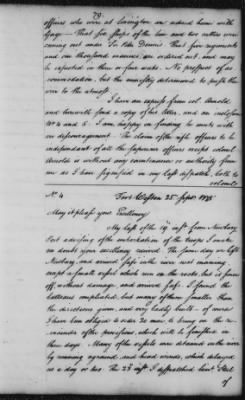 79.
officers who were at Lexington are ordered home with
Gage — That five ships of the line and two cutters were
coming out under Sir Peter Dennis That five regiments
and one thousand marines are ordered out, and may
be expected in three or four weeks. No prospect of ac-
commodation, but the ministry determined to push the
war to the utmost.
I have an express from col. Arnold
and herewith send a copy of his letter, and an inclosure
No 4 & 5. I am happy in finding he meets with
no discouragement. The claim of the rifle officers to be
independant of all the superiour officers except colonel
Arnold is without any countenance or authority from
me as I have signified in my last dispatch, both to
colonels
No 4 Fort Western 25 Septr. 1775
May it please your Excellency
My last of the 19 inst. from Newbury
Port advising of the embarkation of the troops I make
no doubt your excellency received. The same day we left
Newbury, and arrived safe in the river next morning
except a small vessel which run on the rocks, but is since
off, without damage, and arrived safe. I found the
batteaus completed, but many of them smaller than
the directions given, and very badly built — of course
I have been obliged to order 20 more to bring on the re-
mainder of the provisions, which will be finished in
three days. Many of the vessels were detained in the river
by running aground, and head winds, which delayed
us a day or two. The 23d inst. I dispatched lieut. Steel
of